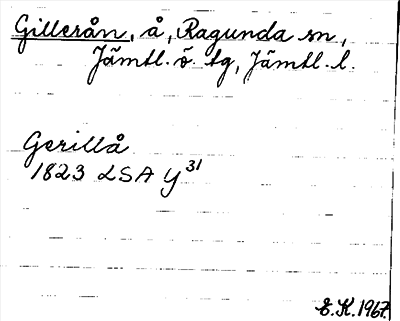 Gillerån, å, Ragunda sn,
Jämtl. ö. tg, Jämtl. l.
Gerillå
1823 LSA Y31
E.K. 1967.